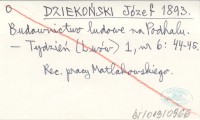 DZIEKOŃSKI Józef 1893.
Budownictwo ludowe na Podhalu.
— Tydzień (Lwów) 1, nr 6: 44-45.
Rec. pracy Matlakowskiego.